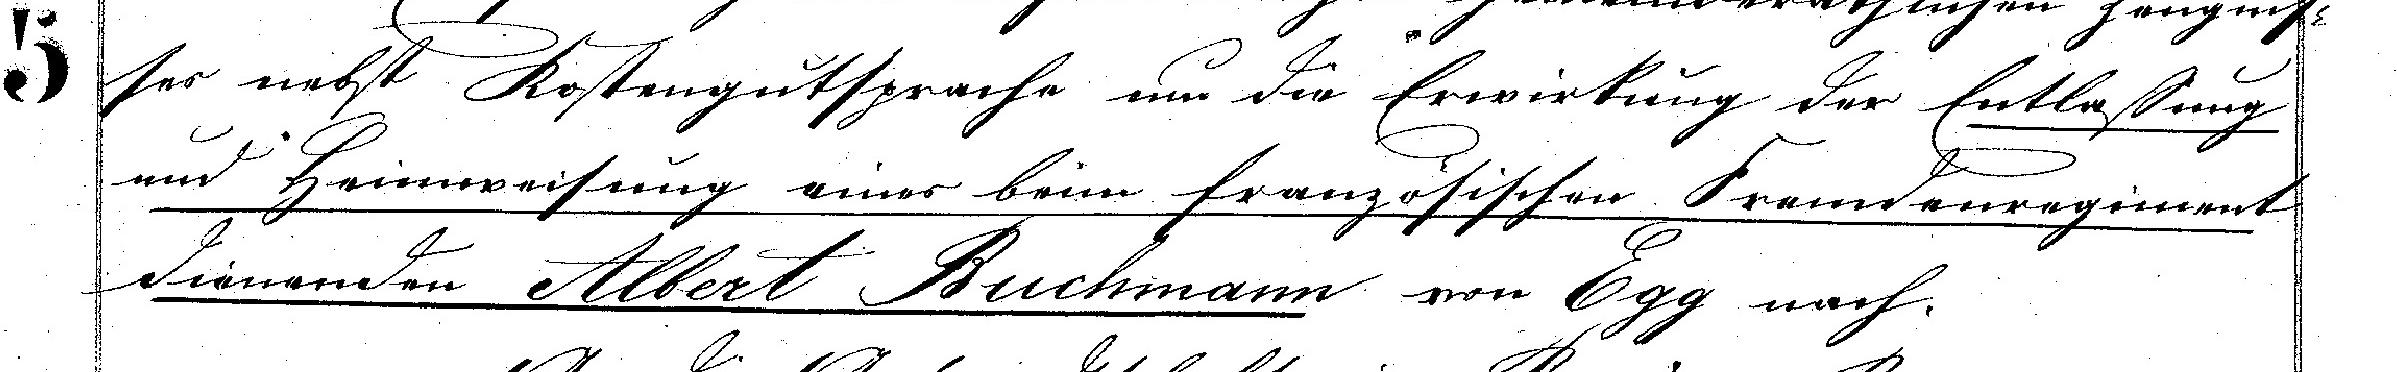 5
gemeinderäthlichen Zeugnis-
ses nebst Kostengutsprache um die Erwirkung der Entlassung
und Heimweisung eines beim französischen Fremdenregiment
dienenden Albert Buchmann von Egg nach.